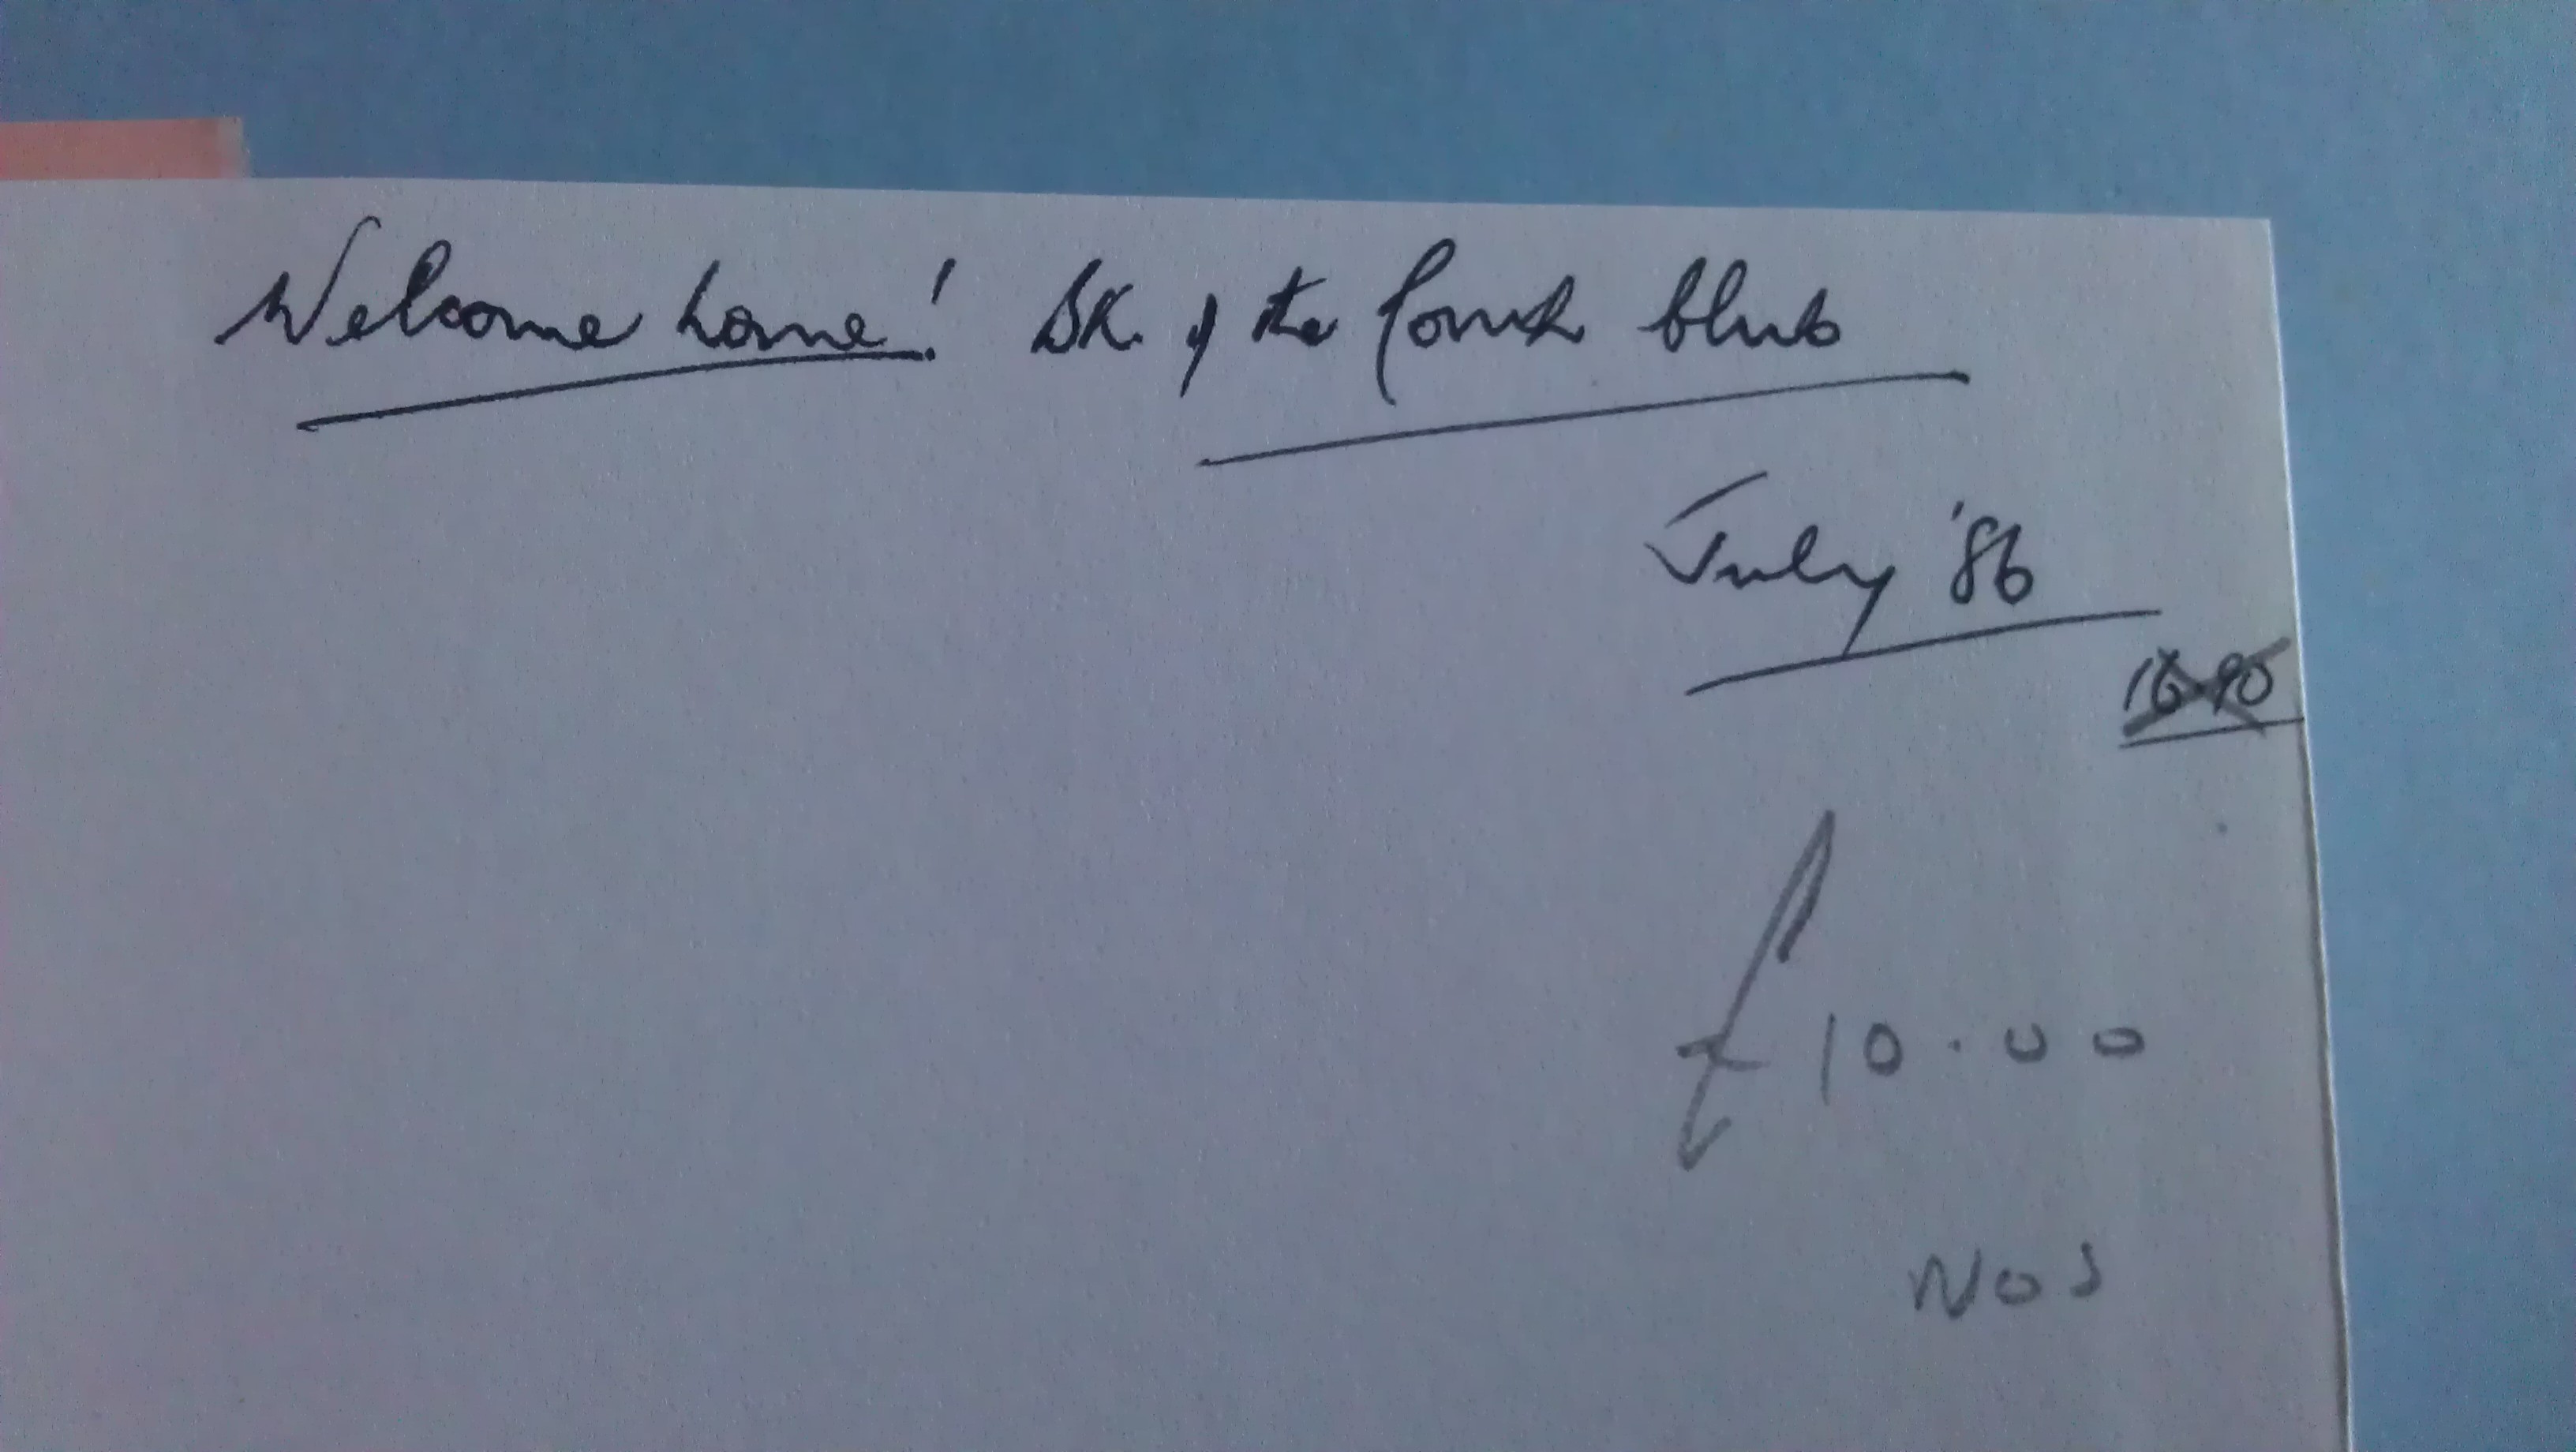 Welcome home! BK. of the blub
July '86
16.90
£10.00
NOS